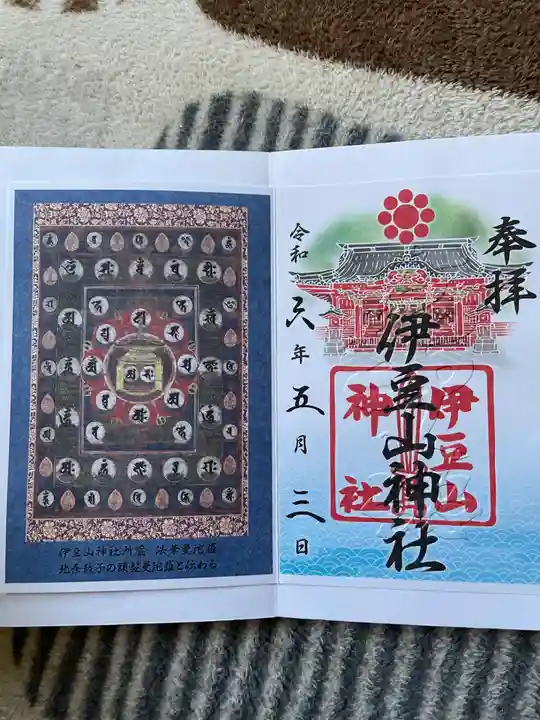 奉拝
伊豆山神社
伊豆山
神社
令和六年五月三日
伊豆山神社所蔵 法華曼陀羅
北条政子の頭髪曼陀羅と伝わる